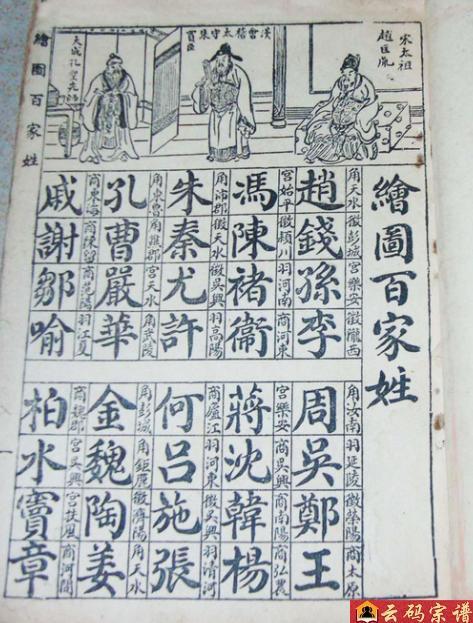 繪圖百家姓
宋太祖
趙匡胤
漢會稽太守朱
買臣
繪圖百家姓
角天水 徵彭城 宮樂安 徵隴西
趙錢孫李
宮始平 徵潁川 羽河南 商河東
馮陳褚衞
角沛郡 徵天水 徵吳興 羽高陽
朱秦尤許
角東魯 角譙郡 宮天水 角武陵
孔曹嚴華
商東海 商陳留 商范陽 羽江夏
戚謝鄒喻
角汝南 羽延陵 徵滎陽 商太原
周吳鄭王
宮樂安 商吳興 商南陽 商弘農
蔣沈韓楊
商廬江 羽河東 徵吳興 羽清河
何呂施張
角彭城 角鉅鹿 徵濟陽 角天水
金魏陶姜
商魏郡 宮吳興 宮扶風 商河間
柏水竇章
云码宗谱